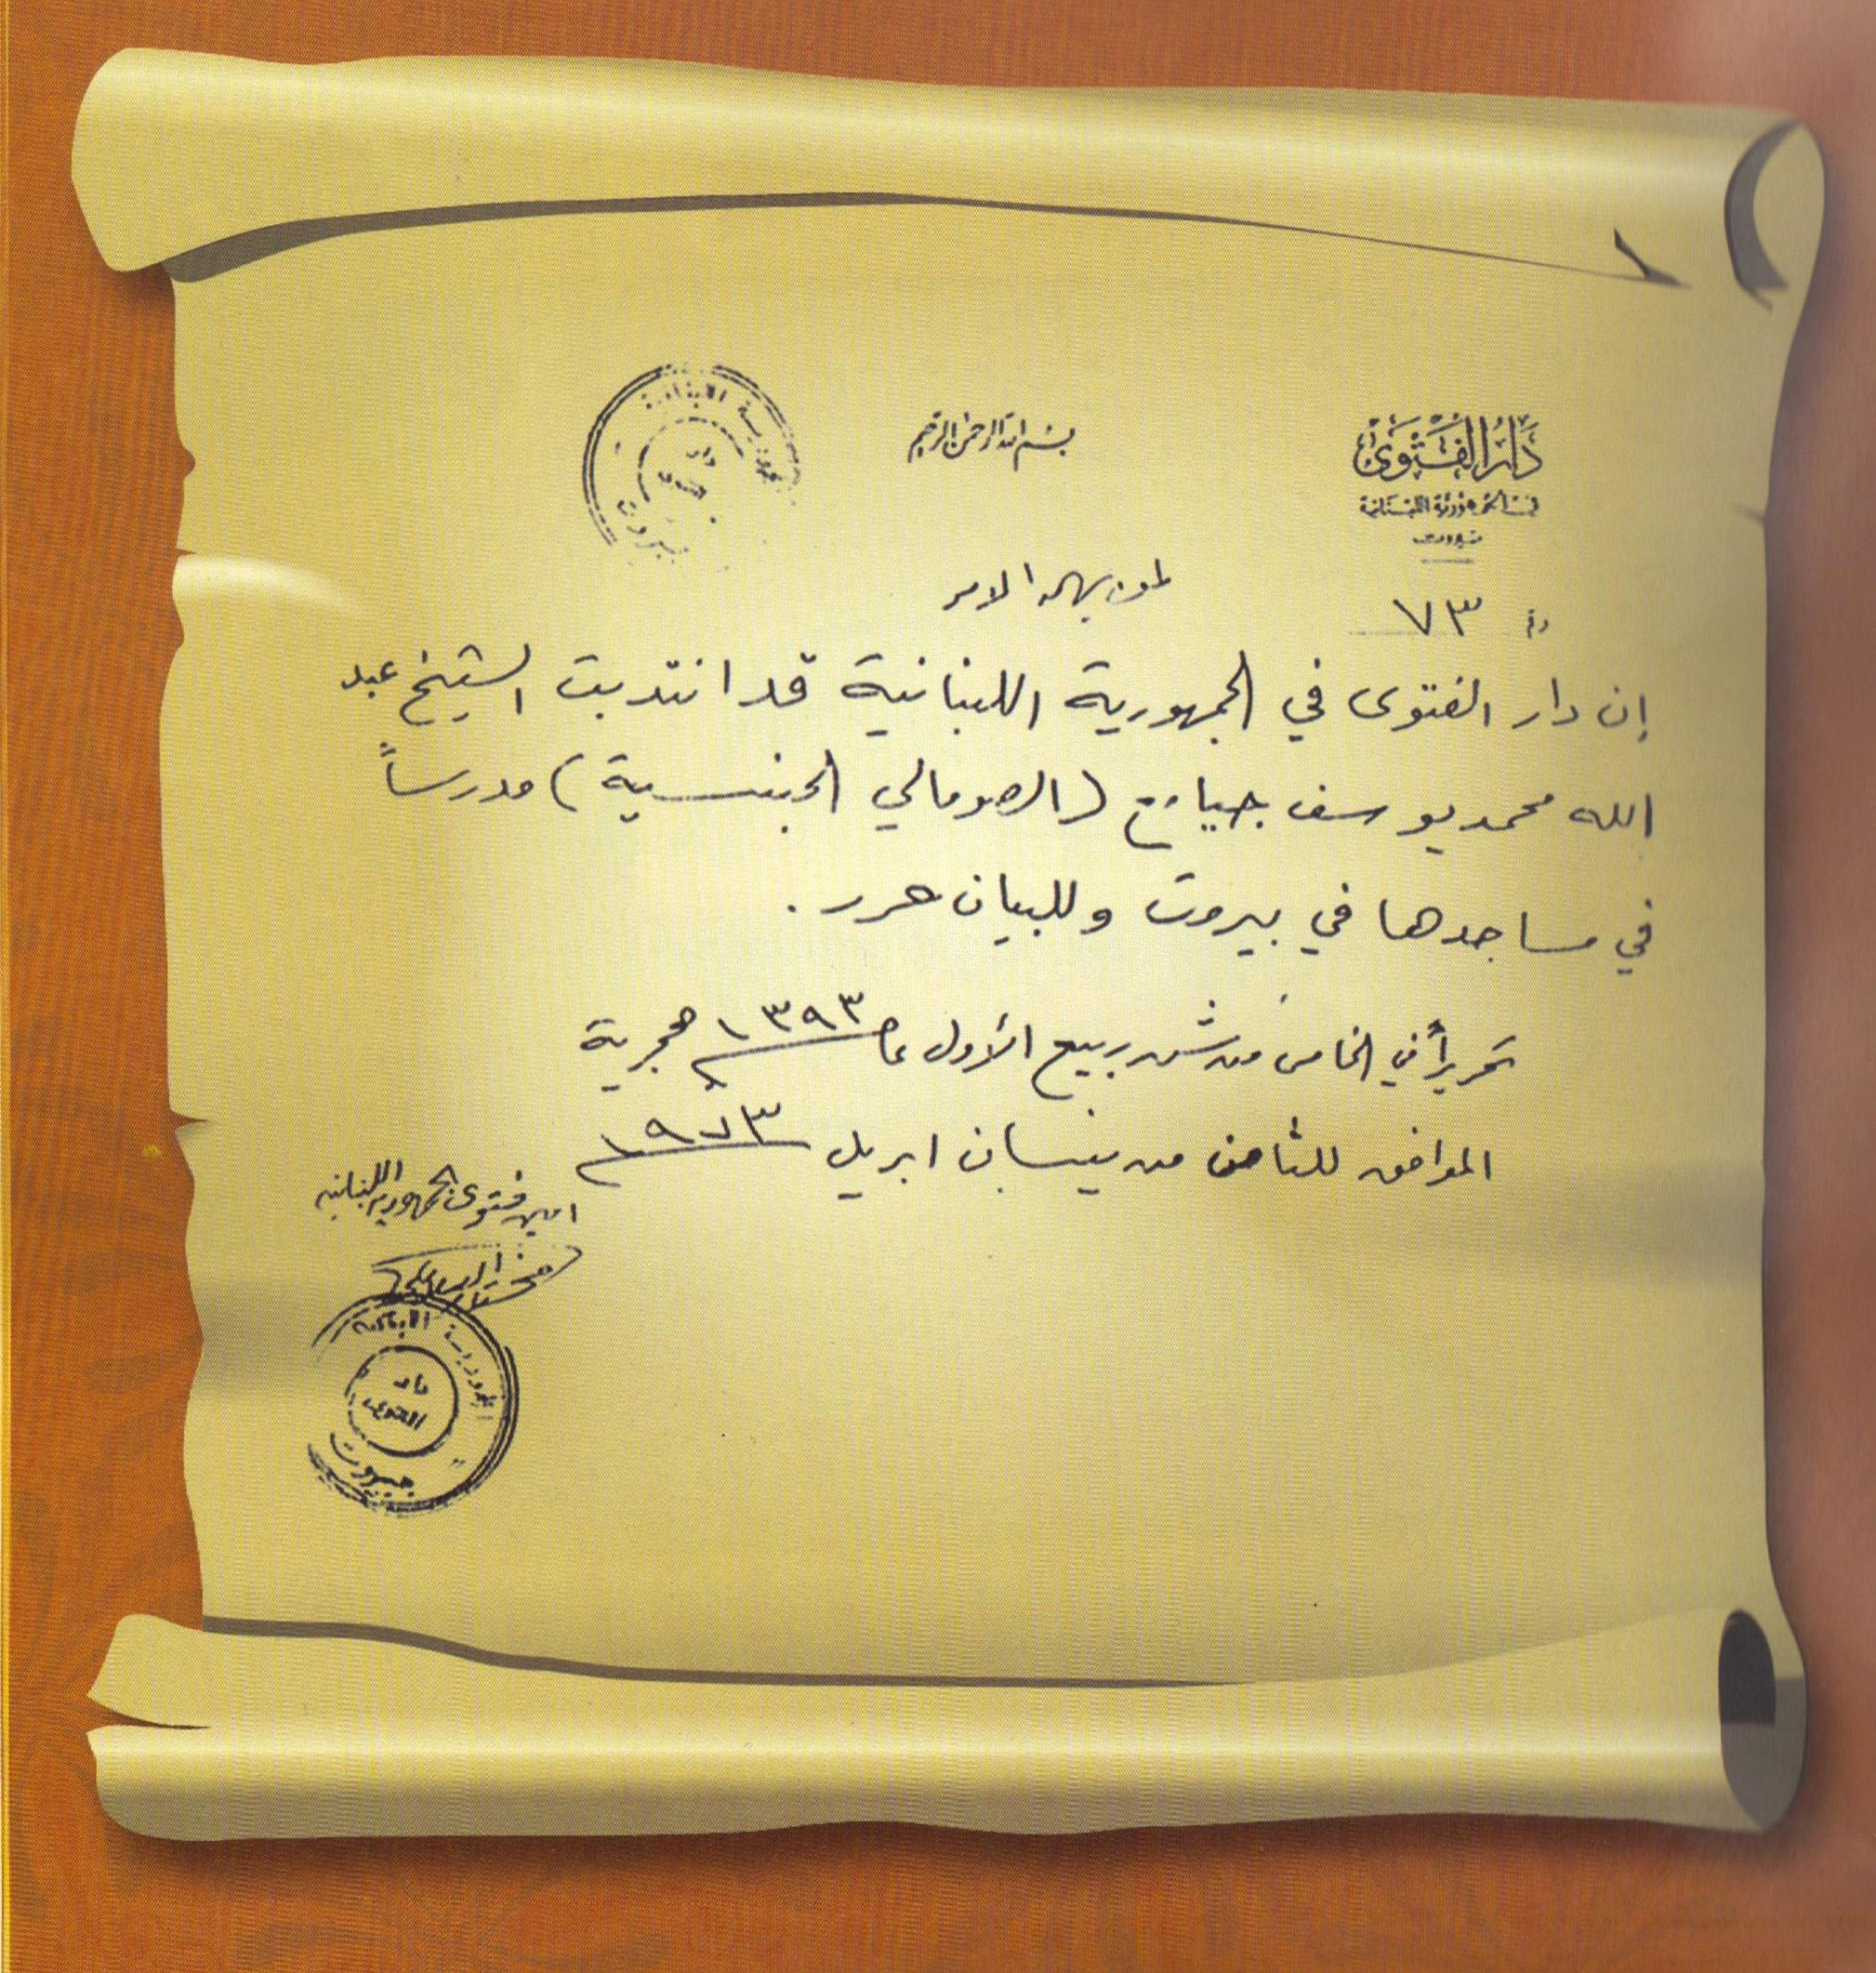 دار الفتوى
في الجمهورية اللبنانية
بيروت
بسم الله الرحمن الرحيم
الجمهورية اللبنانية
دار الفتوى
بيروت
رقم ٧٣
لمن يهمه الامر
إن دار الفتوى في الجمهورية اللبنانية قد انتدبت الشيخ عبد
الله محمد يوسف (الصومالي الجنسية) مدرساً
في مساجدها في بيروت وللبيان حرر .
تحريراً في الخامس من شهر ربيع الأول عام ١٣٩٣ هجرية
الموافق للثامن من نيسان ابريل ١٩٧٣
امين فتوى الجمهورية اللبنانية
مختار العلايلي
الجمهورية اللبنانية
دار الفتوى
بيروت